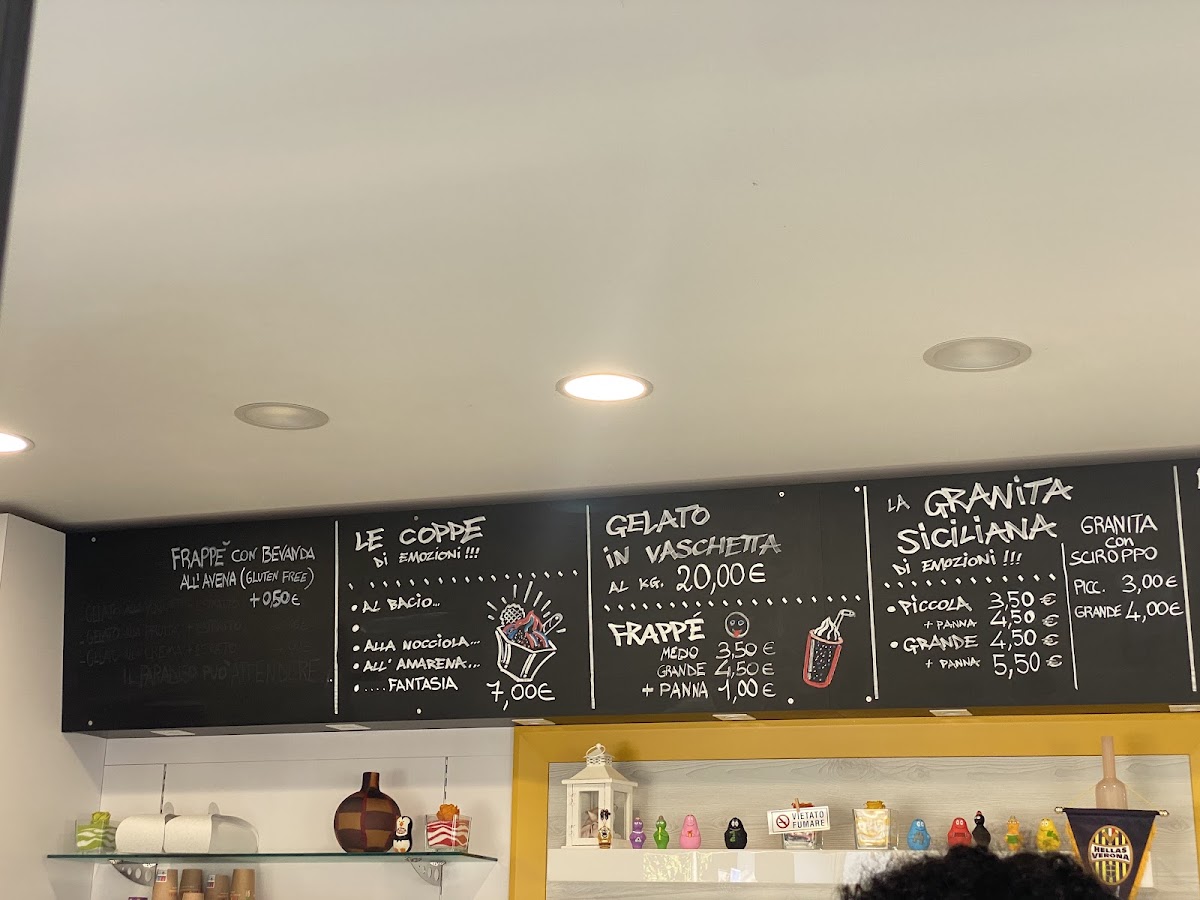 FRAPPE' CON BEVANDA
ALL'AVENA (GLUTEN FREE)
+ 0,50 €
IL PARADISO PUO' ATTENDERE
LE COPPE
DI EMOZIONI!!!
• AL BACIO...
•
• ALLA NOCCIOLA...
• ALL'AMARENA...
• ....FANTASIA
7,00€
GELATO
IN VASCHETTA
AL KG. 20,00€
FRAPPE'
MEDIO 3,50 €
GRANDE 4,50 €
+ PANNA 1,00€
LA GRANITA
SICILIANA
DI EMOZIONI!!!
• PICCOLA 3,50 €
+ PANNA 4,50 €
• GRANDE 4,50 €
+ PANNA 5,50€
GRANITA
con
SCIROPPO
PICC. 3,00€
GRANDE 4,00€
VIETATO
FUMARE
HELLAS
VERONA